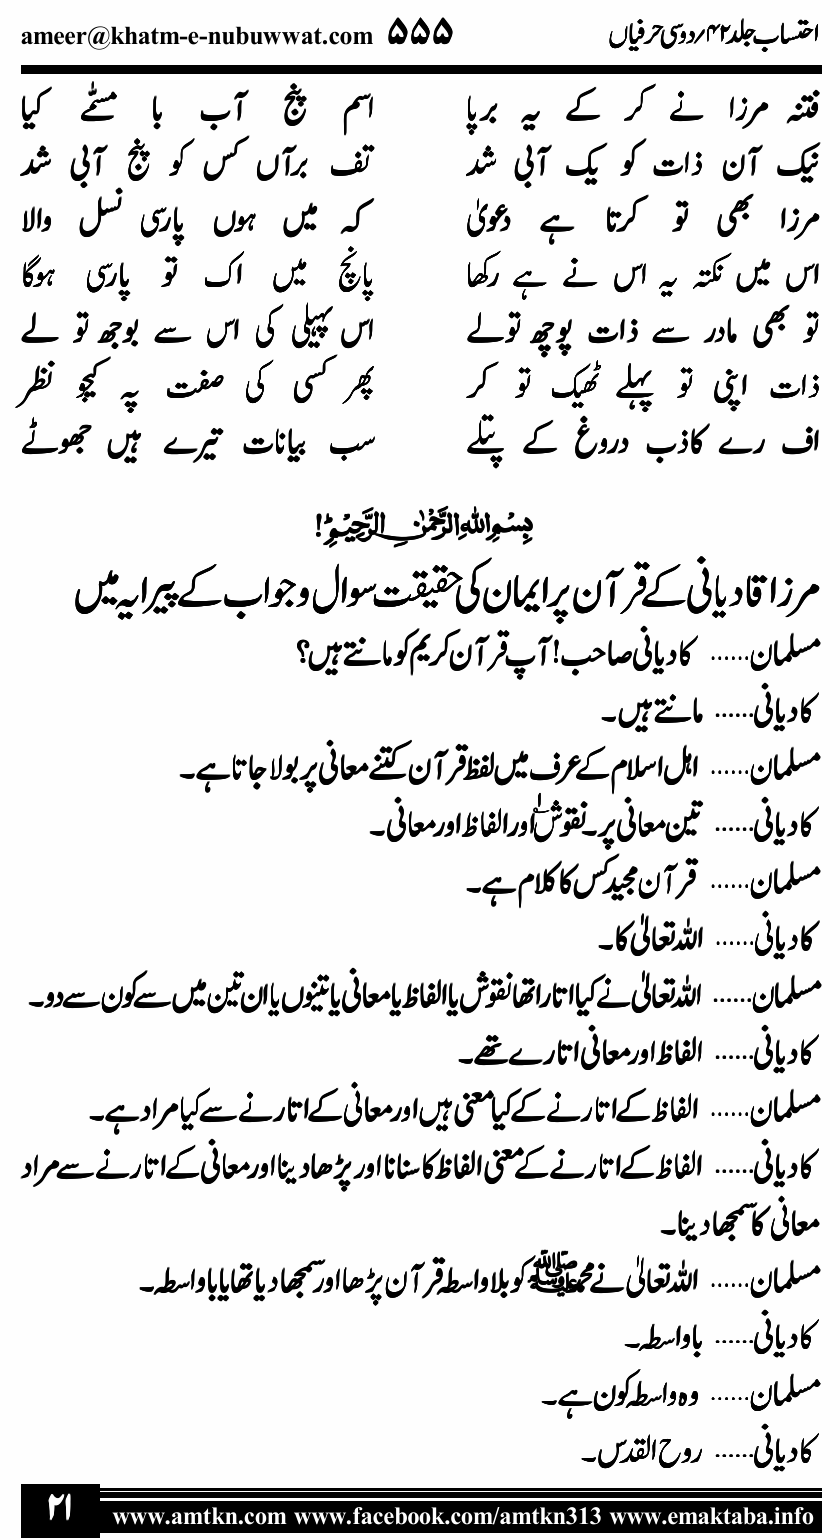 ameer@khatm-e-nubuwwat.com ۵۵۵ احتساب جلد۴۲؍دوسی حرفیاں
فتنہ مرزا نے کر کے یہ برپا اسم پنج آب با مسمّٰے کیا
نیک آن ذات کو یک آبی شد تف برآں کس کو پنج آبی شد
مرزا بھی تو کرتا ہے دعویٰ کہ میں ہوں پارسی نسل والا
اس میں نکتہ یہ اس نے ہے رکھا پانچ میں اک تو پارسی ہوگا
تو بھی مادر سے ذات پوچھ تولے اس پہیلی کی اس سے بوجھ تو لے
ذات اپنی تو پہلے ٹھیک تو کر پھر کسی کی صفت پہ کیجو نظر
اف رے کاذب دروغ کے پتلے سب بیانات تیرے ہیں جھوٹے
بِسْمِ اللّٰہِ الرَّحْمٰنِ الرَّحِیْمِ!
مرزا قادیانی کے قرآن پر ایمان کی حقیقت سوال وجواب کے پیرایہ میں
مسلمان...... کادیانی صاحب! آپ قرآن کریم کو مانتے ہیں؟
کادیانی...... مانتے ہیں۔
مسلمان...... اہل اسلام کے عرف میں لفظ قرآن کتنے معانی پر بولا جاتا ہے۔
کادیانی...... تین معانی پر۔ نقوش اور الفاظ اور معانی۔
مسلمان...... قرآن مجید کس کا کلام ہے۔
کادیانی...... اللہ تعالیٰ کا۔
مسلمان...... اللہ تعالیٰ نے کیا اتارا تھا نقوش یا الفاظ یا معانی یا تینوں یا ان تین میں سے کون سے دو۔
کادیانی...... الفاظ اور معانی اتارے تھے۔
مسلمان...... الفاظ کے اتارنے کے کیا معنی ہیں اور معانی کے اتارنے سے کیا مراد ہے۔
کادیانی...... الفاظ کے اتارنے کے معنی الفاظ کا سنانا اور پڑھا دینا اور معانی کے اتارنے سے مراد
معانی کا سمجھا دینا۔
مسلمان...... اللہ تعالیٰ نے محمد ﷺ کو بلا واسطہ قرآن پڑھا اور سمجھا دیا تھا یا باواسطہ۔
کادیانی...... باواسطہ۔
مسلمان...... وہ واسطہ کون ہے۔
کادیانی...... روح القدس۔
۲۱ www.amtkn.com www.facebook.com/amtkn313 www.emaktaba.info